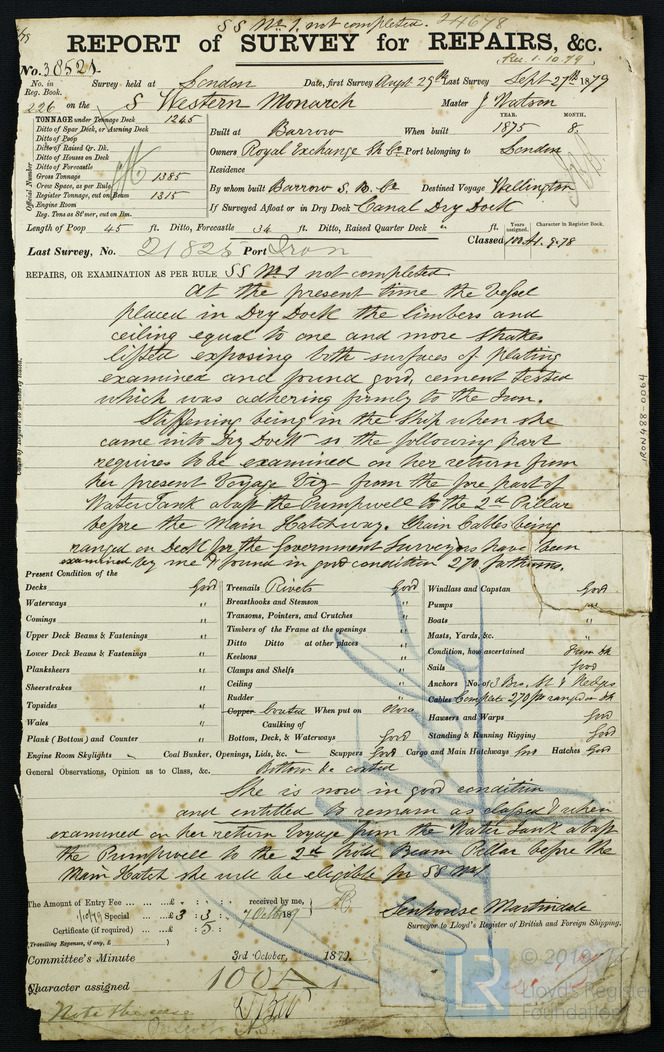 SS No 1, not completed. 24678
REPORT of SURVEY for REPAIRS, &c.
Rec. 1.10.79
No. 38521 Survey held at London Date, first Survey Augt 29th Last Survey Sept 27th 1879
No. in Reg. Book. 226 on the S Western Monarch Master J Watson
TONNAGE under Tonnage Deck 1245
Ditto of Spar Deck, or Awning Deck
Ditto of Poop
Ditto of Raised Qr. Dk.
Ditto of Houses on Deck
Ditto of Forecastle
Gross Tonnage 1385
Crew Space, as per Rule
Register Tonnage, cut on Beam 1315
Engine Room
Reg. Tons as St'mer, cut on Bm.
Official Number
Built at Barrow When built YEAR. 1875 MONTH. 8
Owners Royal Exchange Sh Co Port belonging to London
Residence
By whom built Barrow S. B. Co Destined Voyage Wellington
If Surveyed Afloat or in Dry Dock Canal Dry Dock
Length of Poop 45 ft. Ditto, Forecastle 34 ft. Ditto, Raised Quarter Deck " ft.
Years assigned. Character in Register Book.
Classed 100A1. 9.78
Last Survey, No. 21825 Port Iron
REPAIRS, OR EXAMINATION AS PER RULE SS No 1 not completed
At the present time the Vessel
placed in Dry Dock the limbers and
ceiling equal to one and more strakes
lifted exposing both surfaces of plating
examined and found good, cement tested
which was adhering firmly to the Iron.
Stiffening being in the Ship when she
came into Dry Dock so the following part
requires to be examined on her return from
her present Voyage Viz- from the fore part of
Water Tank abaft the Pumpwell to the 2d Pillar
before the Main Hatchway. Chain Cables being
ranged on Deck for the Government Surveyors have been
examined by me & found in good condition 270 fathoms.
IRON488-0064
Present Condition of the
Decks Good
Waterways "
Comings "
Upper Deck Beams & Fastenings "
Lower Deck Beams & Fastenings "
Planksheers "
Sheerstrakes "
Topsides "
Wales "
Plank (Bottom) and Counter "
Treenails Rivets Good
Breasthooks and Stemson "
Transoms, Pointers, and Crutches "
Timbers of the Frame at the openings "
Ditto Ditto at other places "
Keelsons "
Clamps and Shelfs "
Ceiling "
Rudder "
Copper Coated When put on Now
Caulking of
Bottom, Deck, & Waterways Good
Windlass and Capstan Good
Pumps "
Boats "
Masts, Yards, &c. "
Condition, how ascertained
Sails Good
Anchors No. of 3 Brs,
Cables Complete 270 fm ranged on dk
Hawsers and Warps Good
Standing & Running Rigging Good
Engine Room Skylights " Coal Bunker, Openings, Lids, &c. " Scuppers Good Cargo and Main Hatchways Hatches Good
General Observations, Opinion as to Class, &c. Bottom &c coated
She is now in good condition
and entitled to remain as classed & when
examined on her return Voyage from the Water Tank abaft
the Pumpwell to the 2d Hold Beam Pillar before the
Main Hatch she will be eligible for SS No 1
The Amount of Entry Fee ... ... £ : : received by me,
1/10/79 Special ... ... £ 3 : 3 : 7 October 1879
Certificate (if required) ... : 5 :
(Travelling Expenses, if any, £ )
Senhouse Martindale
Surveyor to Lloyd's Register of British and Foreign Shipping.
Committee's Minute 3rd October, 1879.
Character assigned 100A1
Note the case
LR
Lloyd's Register
Foundation